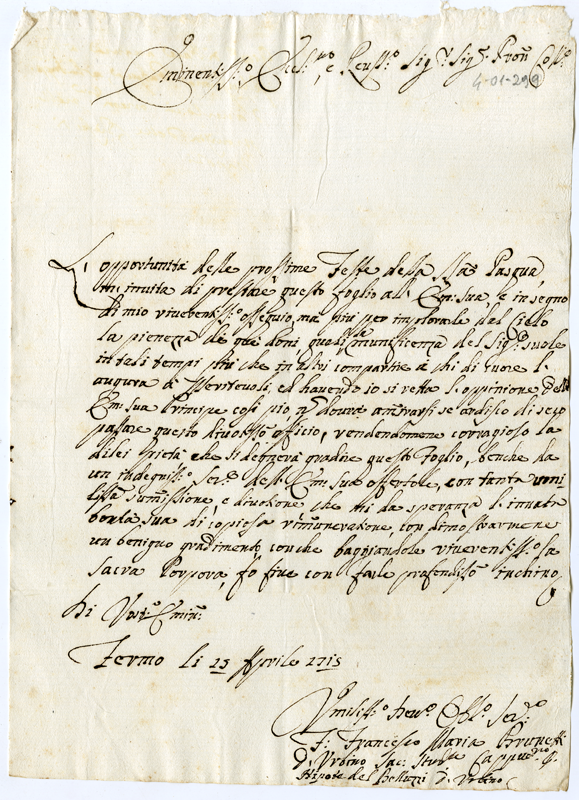 Eminentiss.º e Reuss.º Sig.r Sig.r Pron Col.º
4-01-299
L'opportunità delle prossime Feste della S.ta Pasqua,
m'inuita di prestare questo foglio all' Em: Sua, e in segno
di mio riuerentiss.º osseguio, ma più per implorarle dal Cielo
la pienezza de quei doni, quali la munificenza del Sig.re suole
in tali tempi più che in altri compartire a chi di cuore l'
augura à Meriteuoli, ed hauendo io si retta l'oppinione dell'
Em: Sua Principe così pio, dourà se ardisco di
passare questo diuotiss.º officio, rendendomene coraggioso la
di lei Pietà che si degnerà gradire questo foglio, benche da
un indegniss.º Ser.e dell' Em: Sua offertole, con tanta umi
lissa summissione, e diuotione che mi da speranza l'innata
bontà sua di copiosa rimuneratione, con dimostrarmene
un benigno gradimento, con che baggiandole riuerentiss.º la
Sacra Porpora, fò fine con farle profondiss.º inchino
Di Vost.a Emin:
Fermo li 13 Aprile 1713
Vmiliss.º Deu.º Obl.º Ser.º
F. Francesco Maria Brunetti
d' Vrbino Sac: Capp.no
Nipote del Belluzzi d' Vrbino